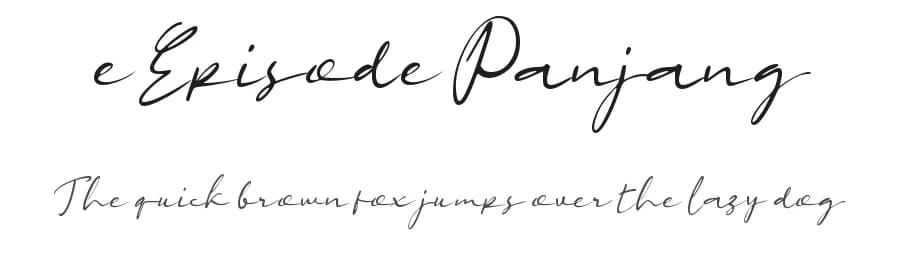 e Episode Panjang
The quick brown fox jumps over the lazy dog